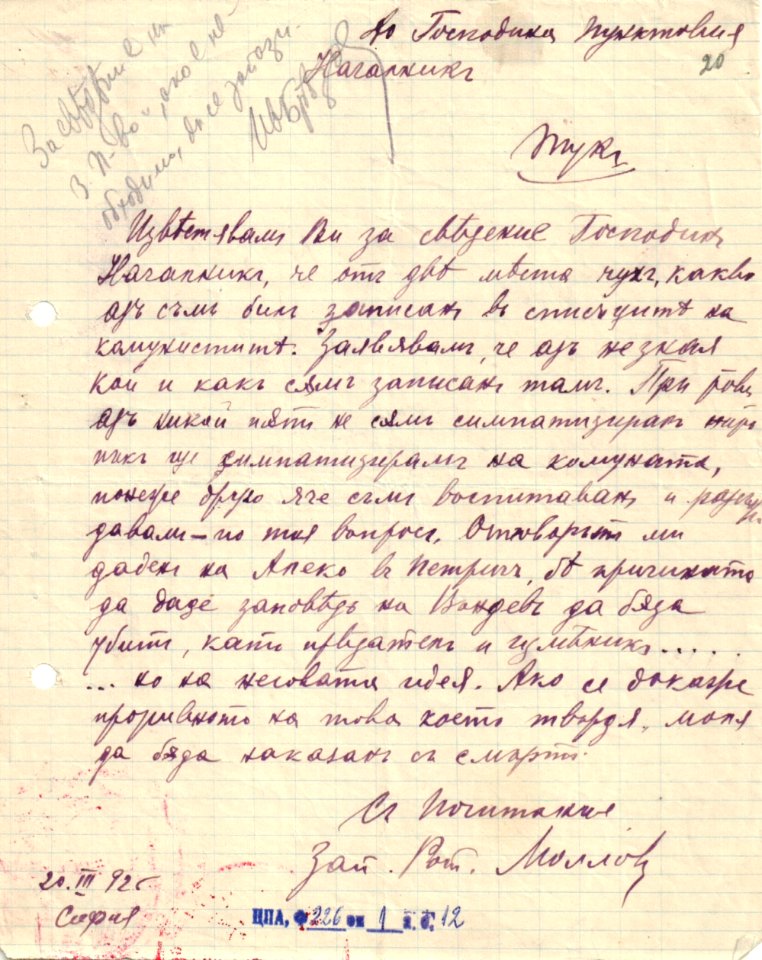 До Господина Пунктовия
Началникъ
20
Тукъ
За сведение на
З. П-во", ако е не-
обходимо, да се запази.
Известявамъ Ви за сведение Господинъ
Началникъ, че отъ две места чухъ, какво
азъ съмъ билъ записанъ въ списъците на
комунистите. Заявявамъ, че азъ незная
кой и какъ съмъ записанъ тамъ. При това
азъ никой пять не сямъ симпатизиралъ нито
пъкъ ще симпатизирамъ на комуната,
понеже друго яче съмъ воспитаванъ и
давали – по тоя вопросъ. Отговорътъ ми
даденъ на Алеко въ Петричъ, бѣ причината
да даде заповѣдь на Вандевъ да бѫда
убитъ, като предателъ и измѣникъ.....
... но на неговата идея. Ако се докаже
противното на това което твърдя, моля
да бѫда наказанъ съ смърть.
Съ Почитание
Зап. Рот. Моллов
20. III 92
София
ЦПА, ф. 226 оп 1 а. е. 12